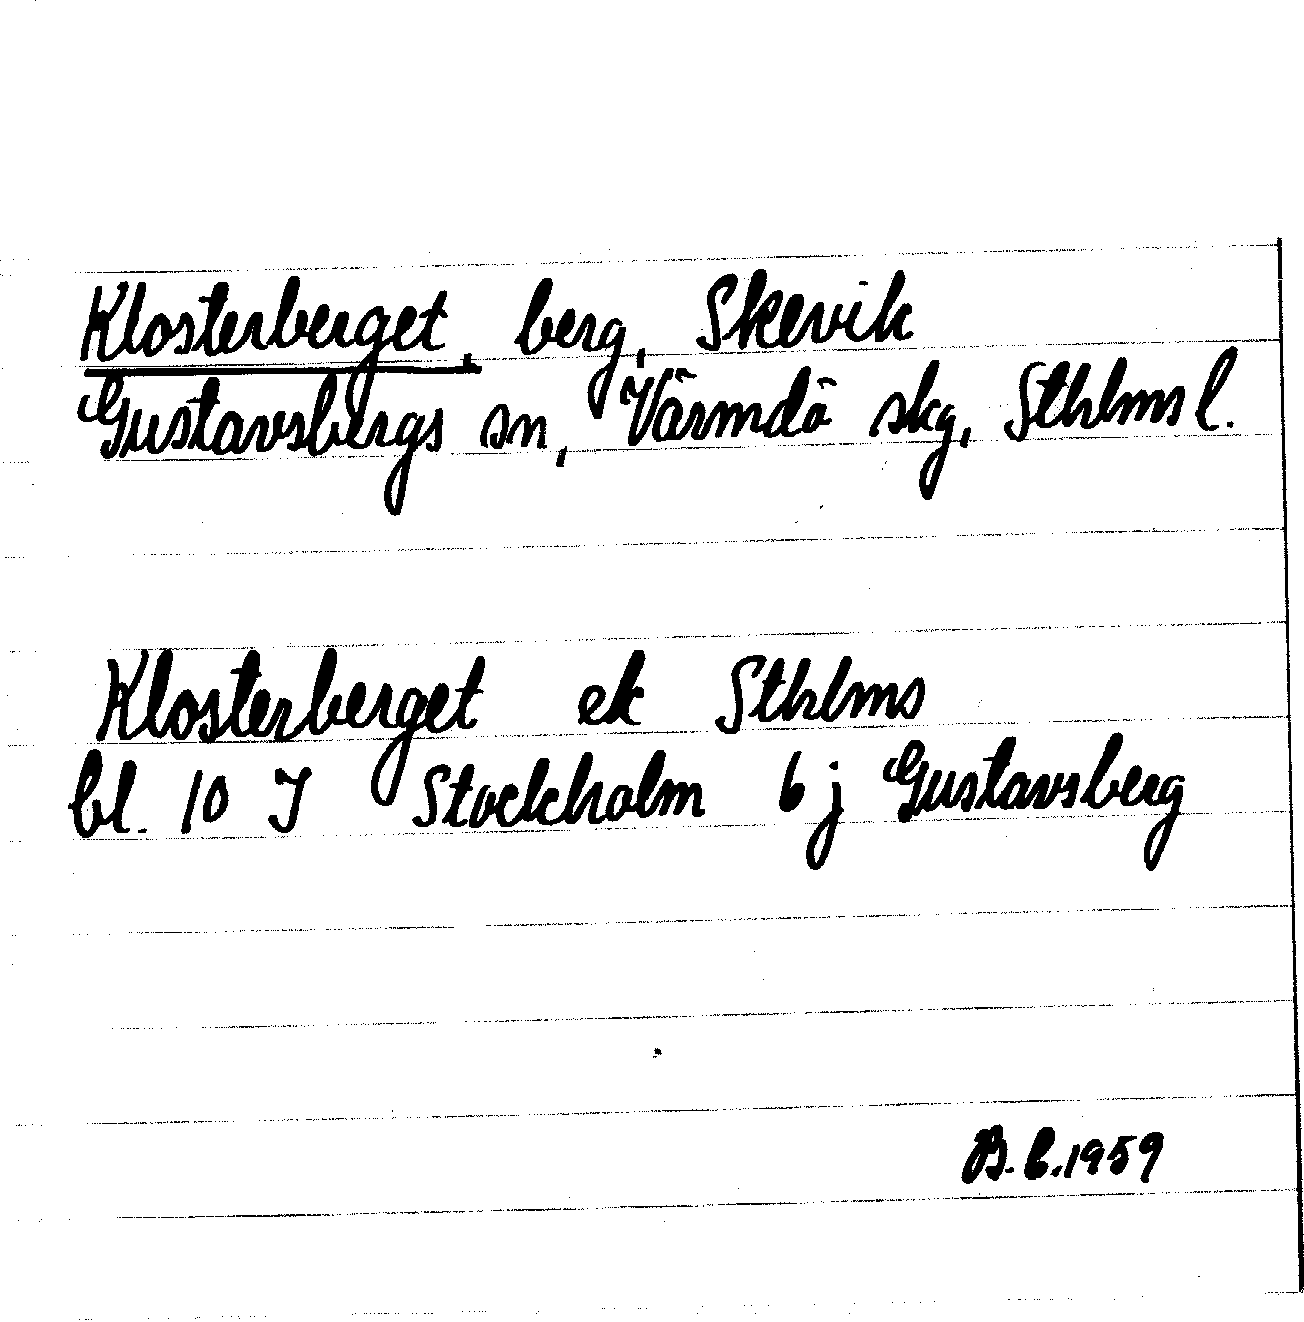 Klosterberget, berg, Skevik
Gustavsbergs sn, Värmdö skg, Sthlms l.
Klosterberget ek Sthlms
bl. 10 J Stockholm 6 j Gustavsberg
B. L. 1959